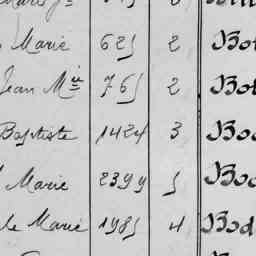 Marie 625 2 Bot
Jean Mie 765 2 Bot
Baptiste 1424 3 Bod
Marie 2399 5 Bod
de Marie 1985 4 Bod